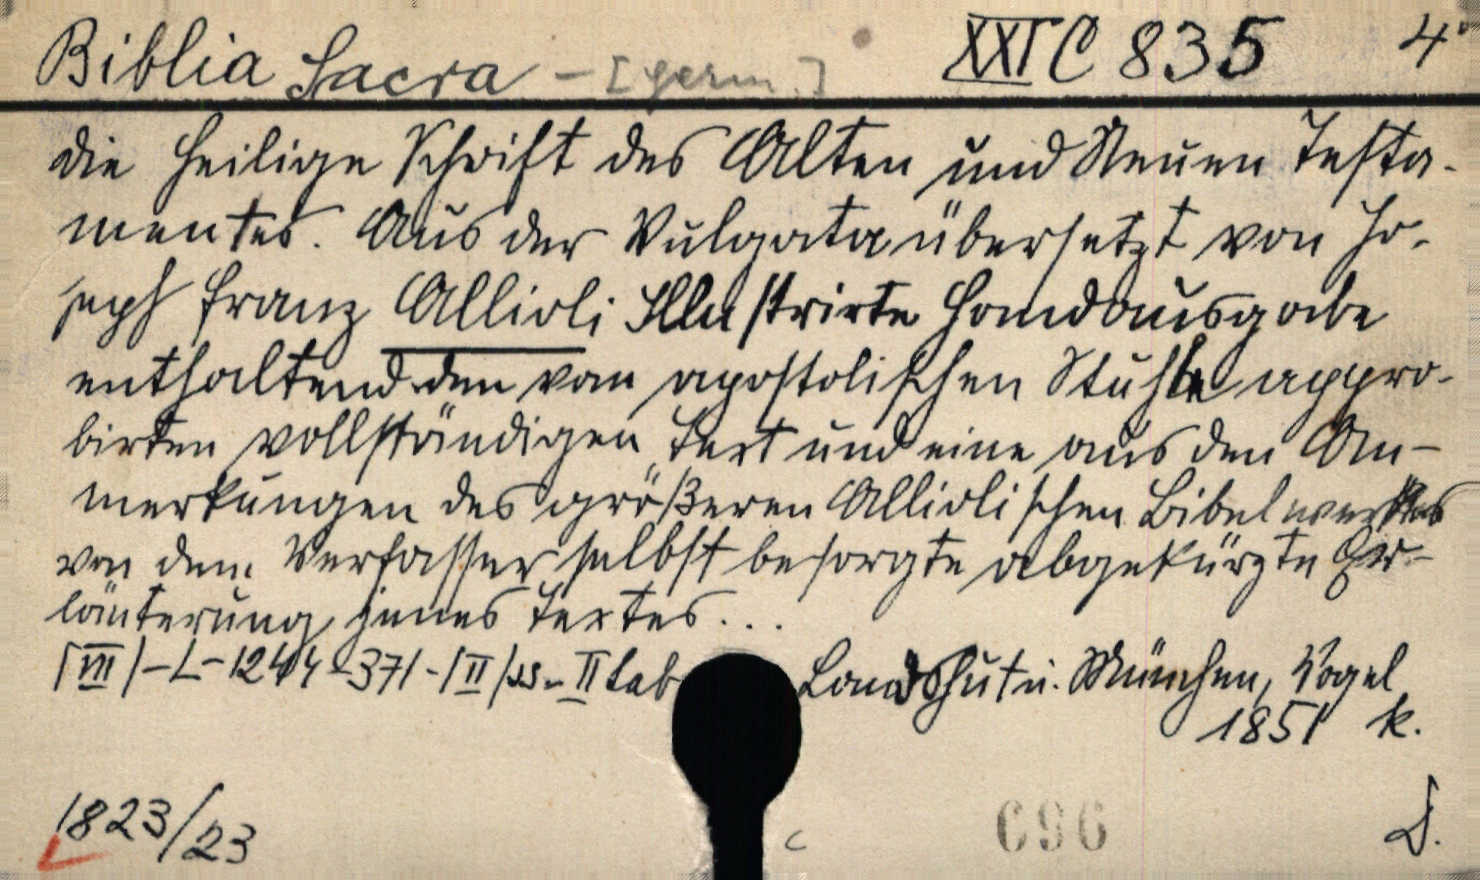 Biblia Sacra - [germ.] XXI C 835 4°
Die Heilige Schrift des Alten und Neuen Testa-
mentes. Aus der Vulgata übersetzt von Jo-
seph Franz Allioli Illustrirte Handausgabe
enthaltend den vom apostolischen Stuhle appro-
birten vollständigen Text und eine aus den An-
merkungen des größeren Alliolischen Bibelwerkes
von dem Verfasser selbst besorgte abgekürzte Er-
läuterung jenes Textes...
[VIII]-L-1244-371-[II] ss.-II tab Landshut u. München, Vogel
1851 k.
1823/23
c 696 D.